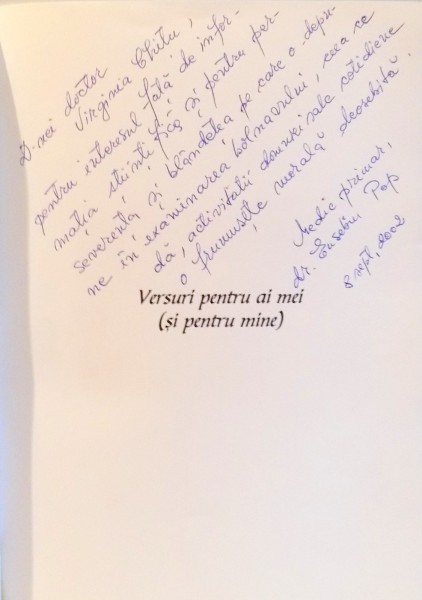 D-nei doctor
Virginia Chitu,
pentru interesul față de infor-
mația științifică și pentru per-
severența și blândețea pe care o depu-
ne în examinarea bolnavului, ceea ce
dă, activității domniei sale cotidiene
o frumusețe morală deosebită.
Medic primar,
dr. Eusebiu Pop
8 sept, 2002
Versuri pentru ai mei
(și pentru mine)